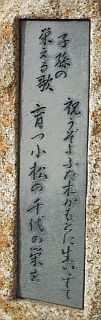 子孫の
栄える歌
祝うぞよふた木がもとに生いでて
育つ小松の千代の栄を